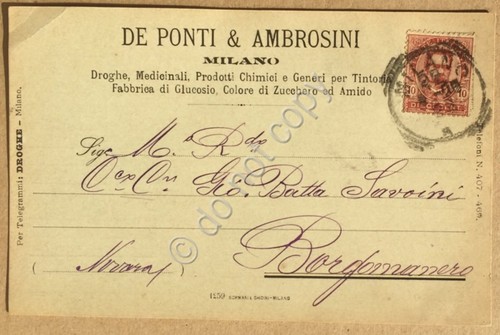 DE PONTI & AMBROSINI
MILANO
Droghe, Medicinali, Prodotti Chimici e Generi per Tintoria
Fabbrica di Glucosio, Colore di Zucchero ed Amido
Per Telegrammi: DROGHE - Milano.
Telefoni N. 407 - 408.
MILANO
Sig. M.o Rdo
Gio Batta Savoini
Borgomanero
(Novara)
1159 GERMANIA SMORI-MILANO
do not copy